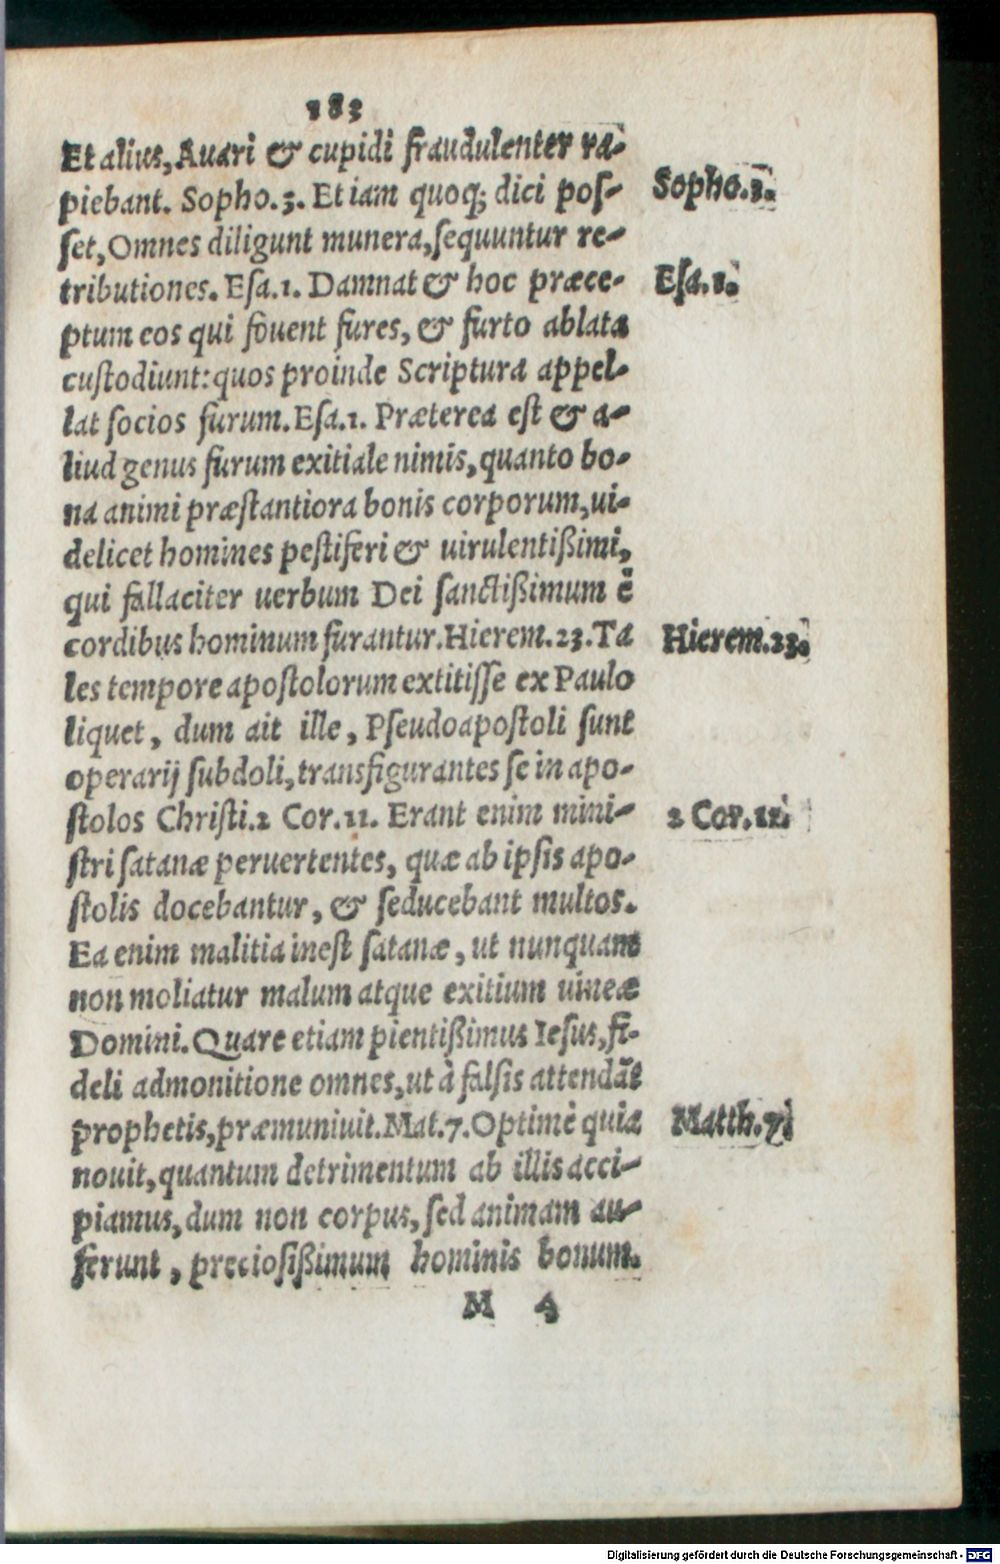 183
Et alius, Auari & cupidi fraudulenter ra-
piebant. Sopho.3. Et iam quoq; dici pos-
Sopho.3.
ſet, Omnes diligunt munera, ſequuntur re-
tributiones. Eſa.1. Damnat & hoc præce-
Eſa.1.
ptum eos qui fouent fures, & furto ablata
cuſtodiunt: quos proinde Scriptura appel-
lat ſocios furum. Eſa.1. Præterea eſt & a-
liud genus furum exitiale nimis, quanto bo-
na animi præſtantiora bonis corporum, ui-
delicet homines peſtiferi & uirulentißimi,
qui fallaciter uerbum Dei ſanctißimum ē
cordibus hominum furantur. Hierem.23. Ta
Hierem.23.
les tempore apoſtolorum extitiſſe ex Paulo
liquet, dum ait ille, Pſeudoapoſtoli ſunt
operarij ſubdoli, transfigurantes ſe in apo-
ſtolos Chriſti. 2 Cor.11. Erant enim mini-
2 Cor.11.
ſtri ſatanæ peruertentes, quæ ab ipſis apo-
ſtolis docebantur, & ſeducebant multos.
Ea enim malitia ineſt ſatanæ, ut nunquam
non moliatur malum atque exitium uineæ
Domini. Quare etiam pientißimus Ieſus, fi-
deli admonitione omnes, ut à falſis attendāt
prophetis, præmuniuit. Mat.7. Optimè quia
Matth.7.
nouit, quantum detrimentum ab illis acci-
piamus, dum non corpus, ſed animam au-
ferunt, precioſißimum hominis bonum.
M 4
Digitalisierung gefördert durch die Deutsche Forschungsgemeinschaft - DFG